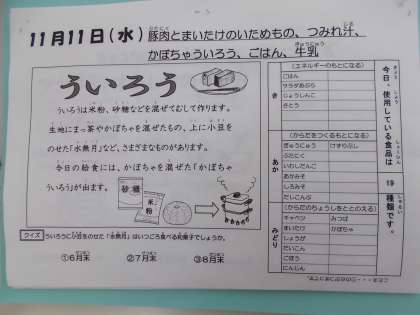 11月11日(水) 豚肉とまいたけのいためもの、つみれ汁、
かぼちゃういろう、ごはん、牛乳
ういろう
ういろうは米粉、砂糖などを混ぜてむして作ります。
生地にまっ茶やかぼちゃを混ぜたもの、上に小豆を
のせた「水無月」など、さまざまなものがあります。
今日の給食には、かぼちゃを混ぜた「かぼちゃ
ういろう」が出ます。
砂糖
米粉
クイズ ういろうに小豆をのせた「水無月」はいつごろ食べる和菓子でしょうか。
①6月末 ②7月末 ③8月末
今日、使用している食品は 19 種類です。
き
(エネルギーのもとになる)
ごはん
サラダあぶら
じょうしんこ
さとう
あか
(からだをつくるもとになる)
ぎゅうにゅう けずりぶし
ぶたにく
いわしだんご
あかみそ
しろみそ
だいこんぶ
みどり
(からだのちょうしをととのえる)
キャベツ みつば
まいたけ かぼちゃ
しょうが
だいこん
ごぼう
にんじん